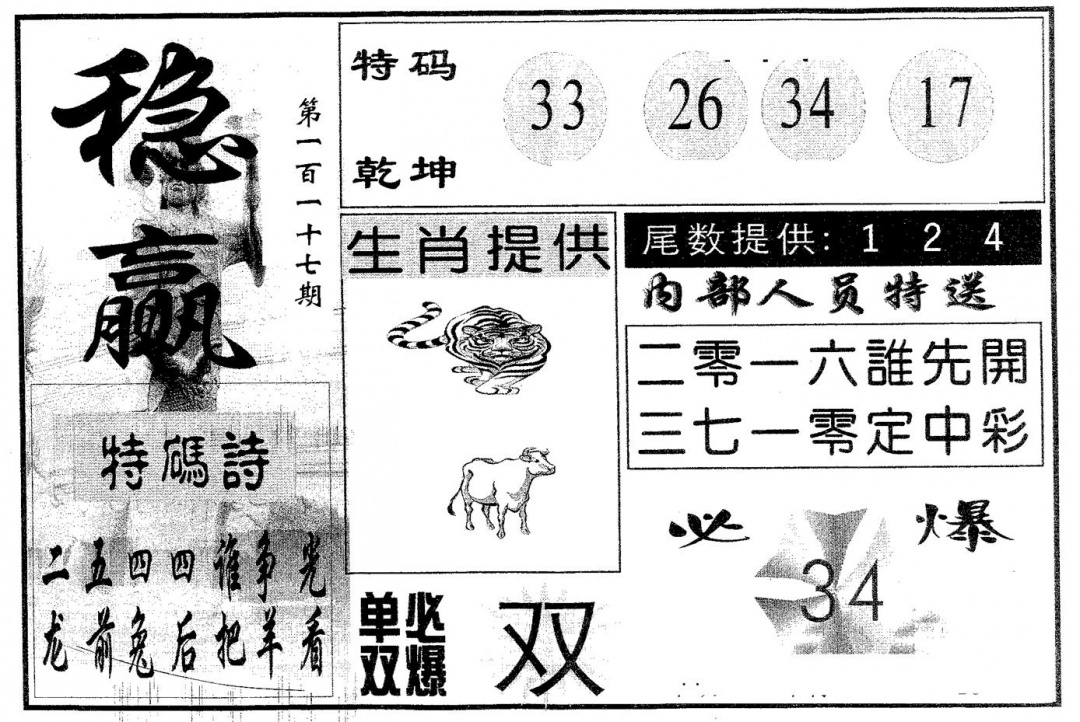 稳赢
第一百一十七期
特码
乾坤
33 26 34 17
生肖提供
尾数提供: 1 2 4
内部人员特送
二零一六誰先開
三七一零定中彩
特碼詩
二五四四谁争光
龙前兔后把羊看
单双
必爆
双
必爆
34